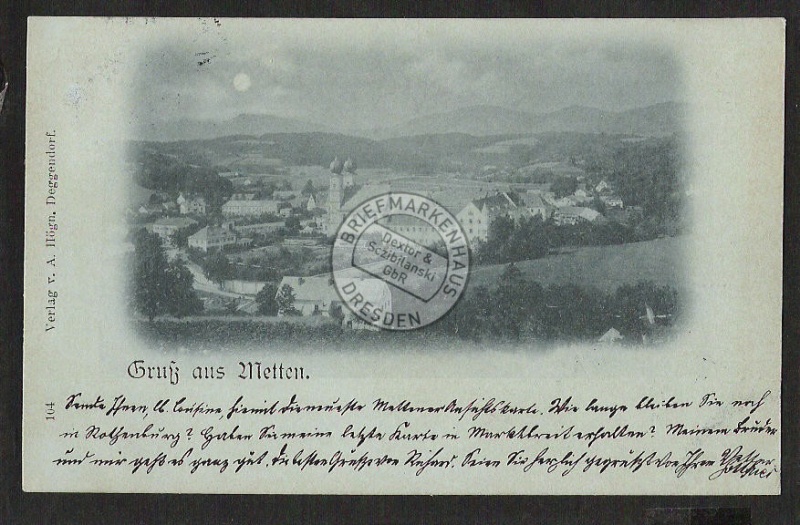 BRIEFMARKENHAUS
Dexter &
Szibilanski
GbR
DRESDEN
Verlag v. A. Högn, Deggendorf.
104
Gruß aus Metten.
Sende Ihnen, lb. Cousine, hiemit die neueste Mettener Ansichtskarte. Wie lange bleiben Sie noch
in Rothenburg? Haben Sie meine letzte Karte in Marktbreit erhalten? Meinem Bruder
und mir geht es ganz gut. Die besten Grüsse von Richard. Seien Sie herzlich gegrüsst von Ihrem Vetter